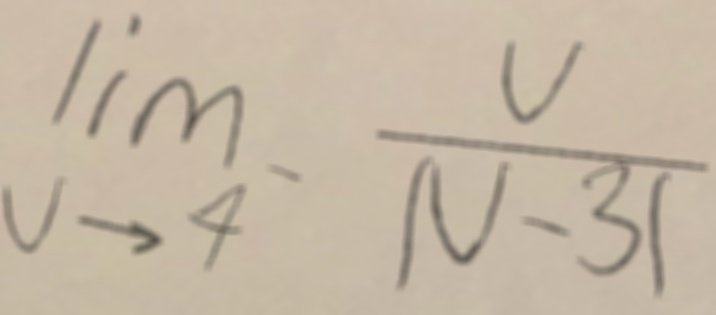 lim v→4⁻ v/|v-3|